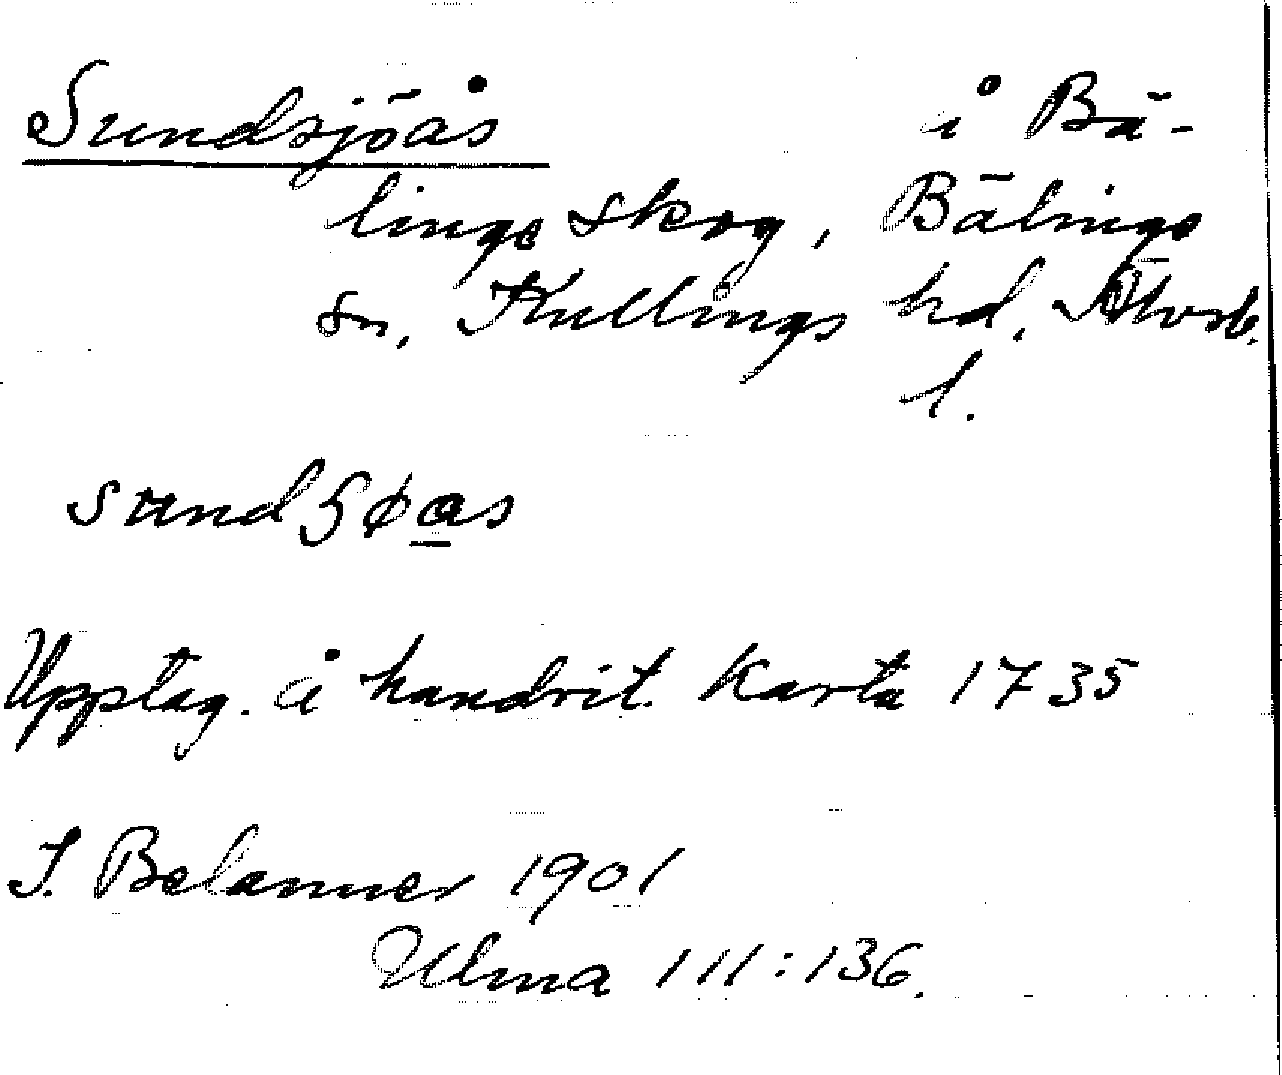 Sundsjöås å Bä-
linge skog, Bälinge
sn, Kullings hd. Älvsb.
l.
sundʒøas
Upptag. å handrit. karta 1735
J. Belanner 1901
Ulma 111:136.